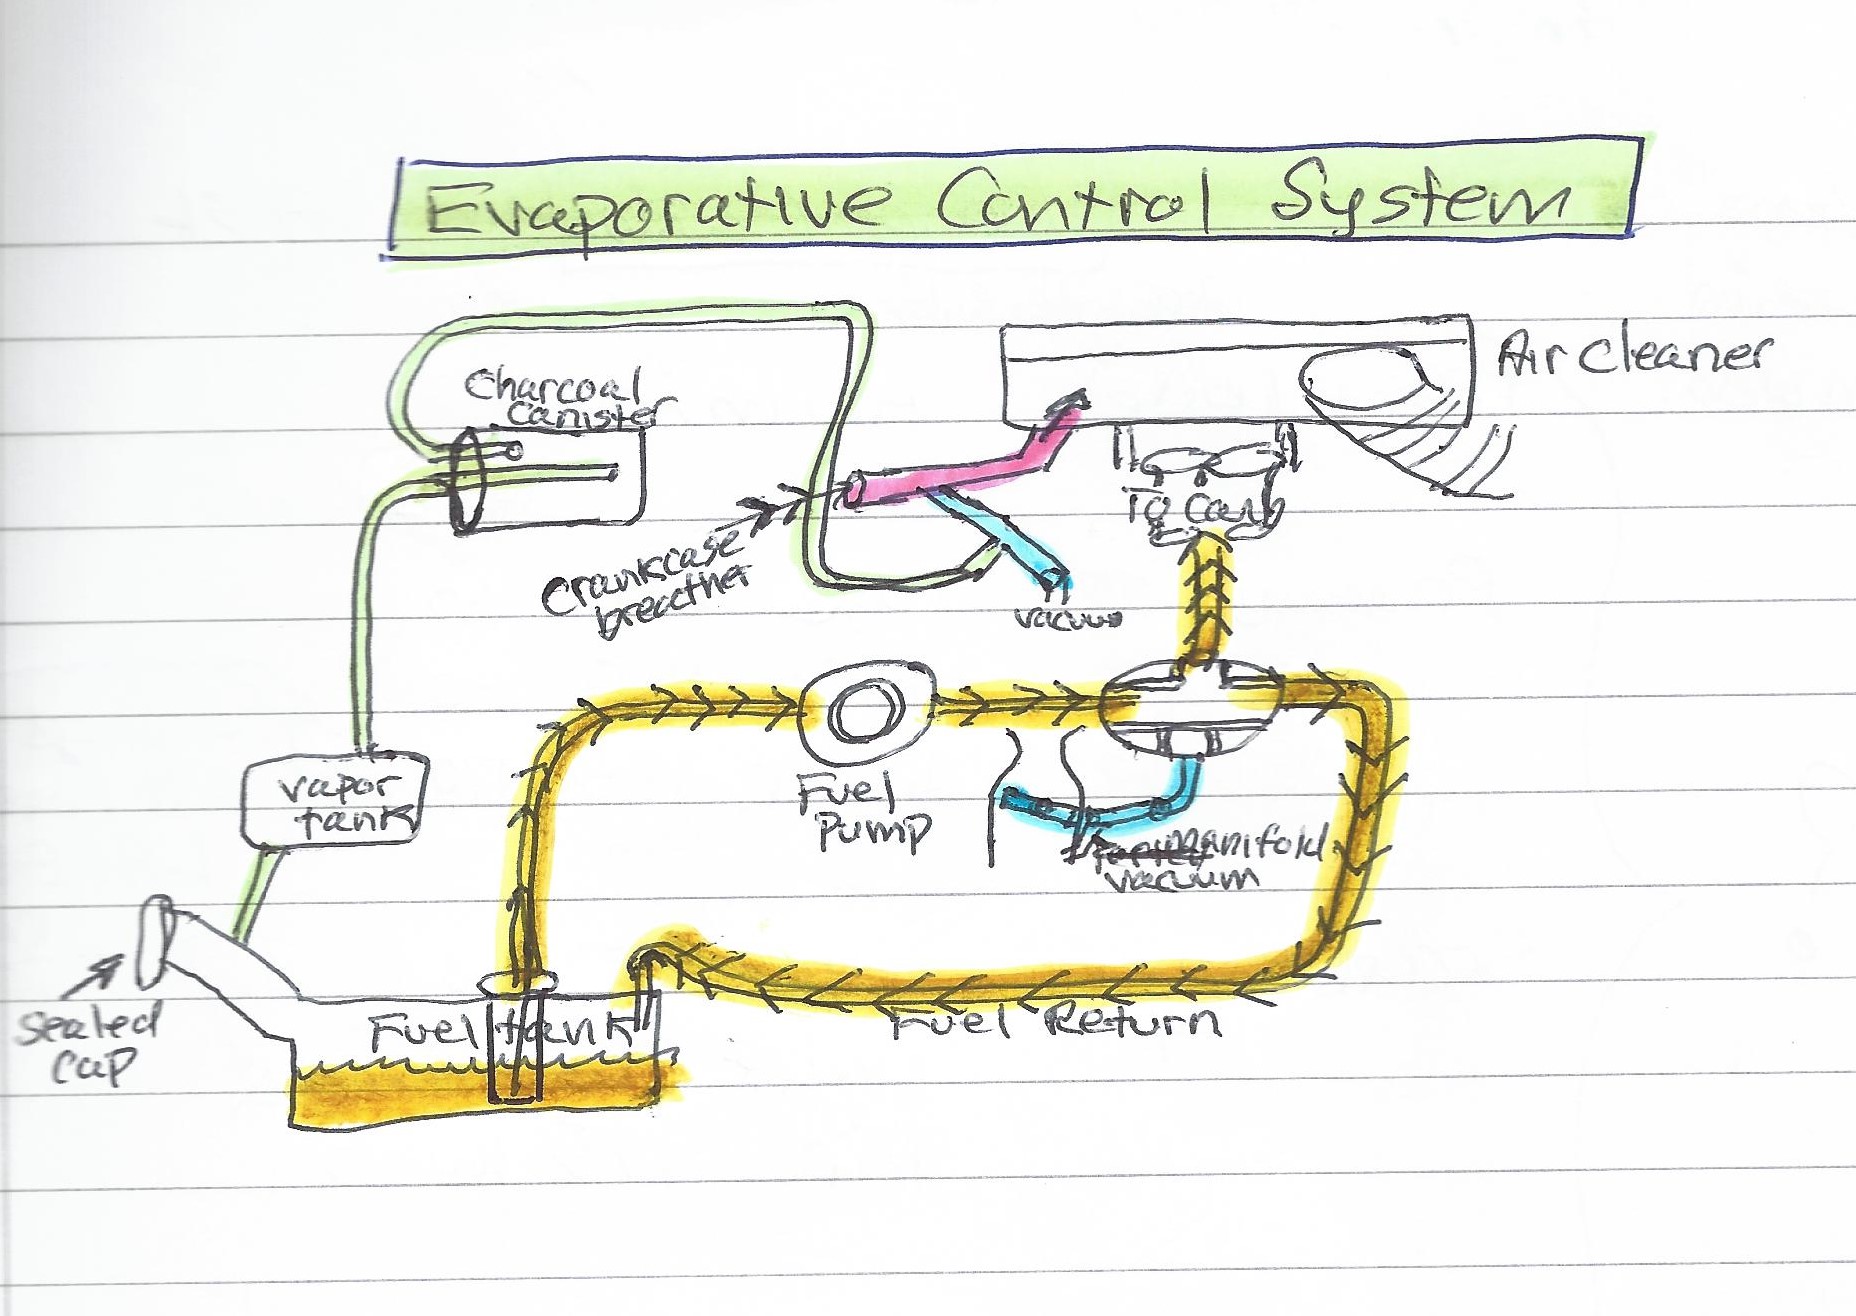 Evaporative Control System
Charcoal
canister
Air Cleaner
To Carb
Crankcase
breather
vacuum
vapor
tank
Fuel
Pump
manifold
vacuum
Sealed
Cap
Fuel tank
Fuel Return